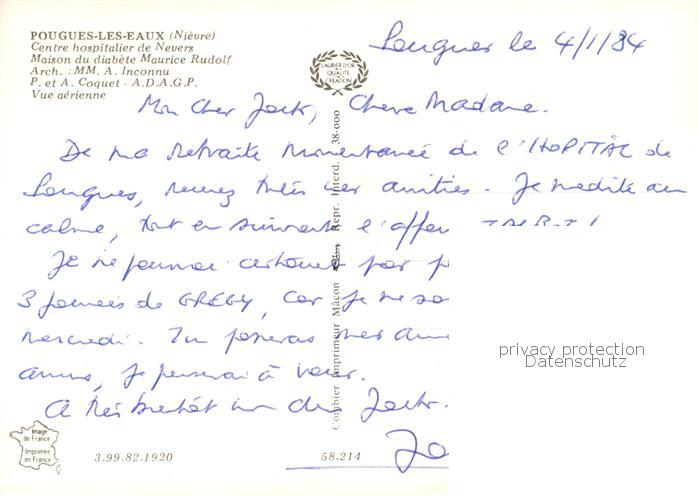 POUGUES-LES-EAUX (Nièvre)
Centre hospitalier de Nevers
Maison du diabète Maurice Rudolf
Arch. : MM. A. Inconnu
P. et A. Coquet - A.D.A.G.P.
Vue aérienne
LAURIER D'OR
QUALITÉ
CREATION
Pougues le 4/1/84
Mon Cher Chere Madame.
De ma Retraite momentanée de l'HOPITAL de
Pougues, recevez mes amitiés. Je médite au
calme, tout en suivant l'affai
Je ne pourrai certainement pas p
3 journées de GREGY, car je ne so
mercredi. Tu poseras mes ami
amis, je penserai à vous.
A très bientôt mon cher
Combier Imprimeur Mâcon Repr. Interd. 38-000
privacy protection
Datenschutz
Image de France
Imprimée en France
3.99.82.1920
58.214